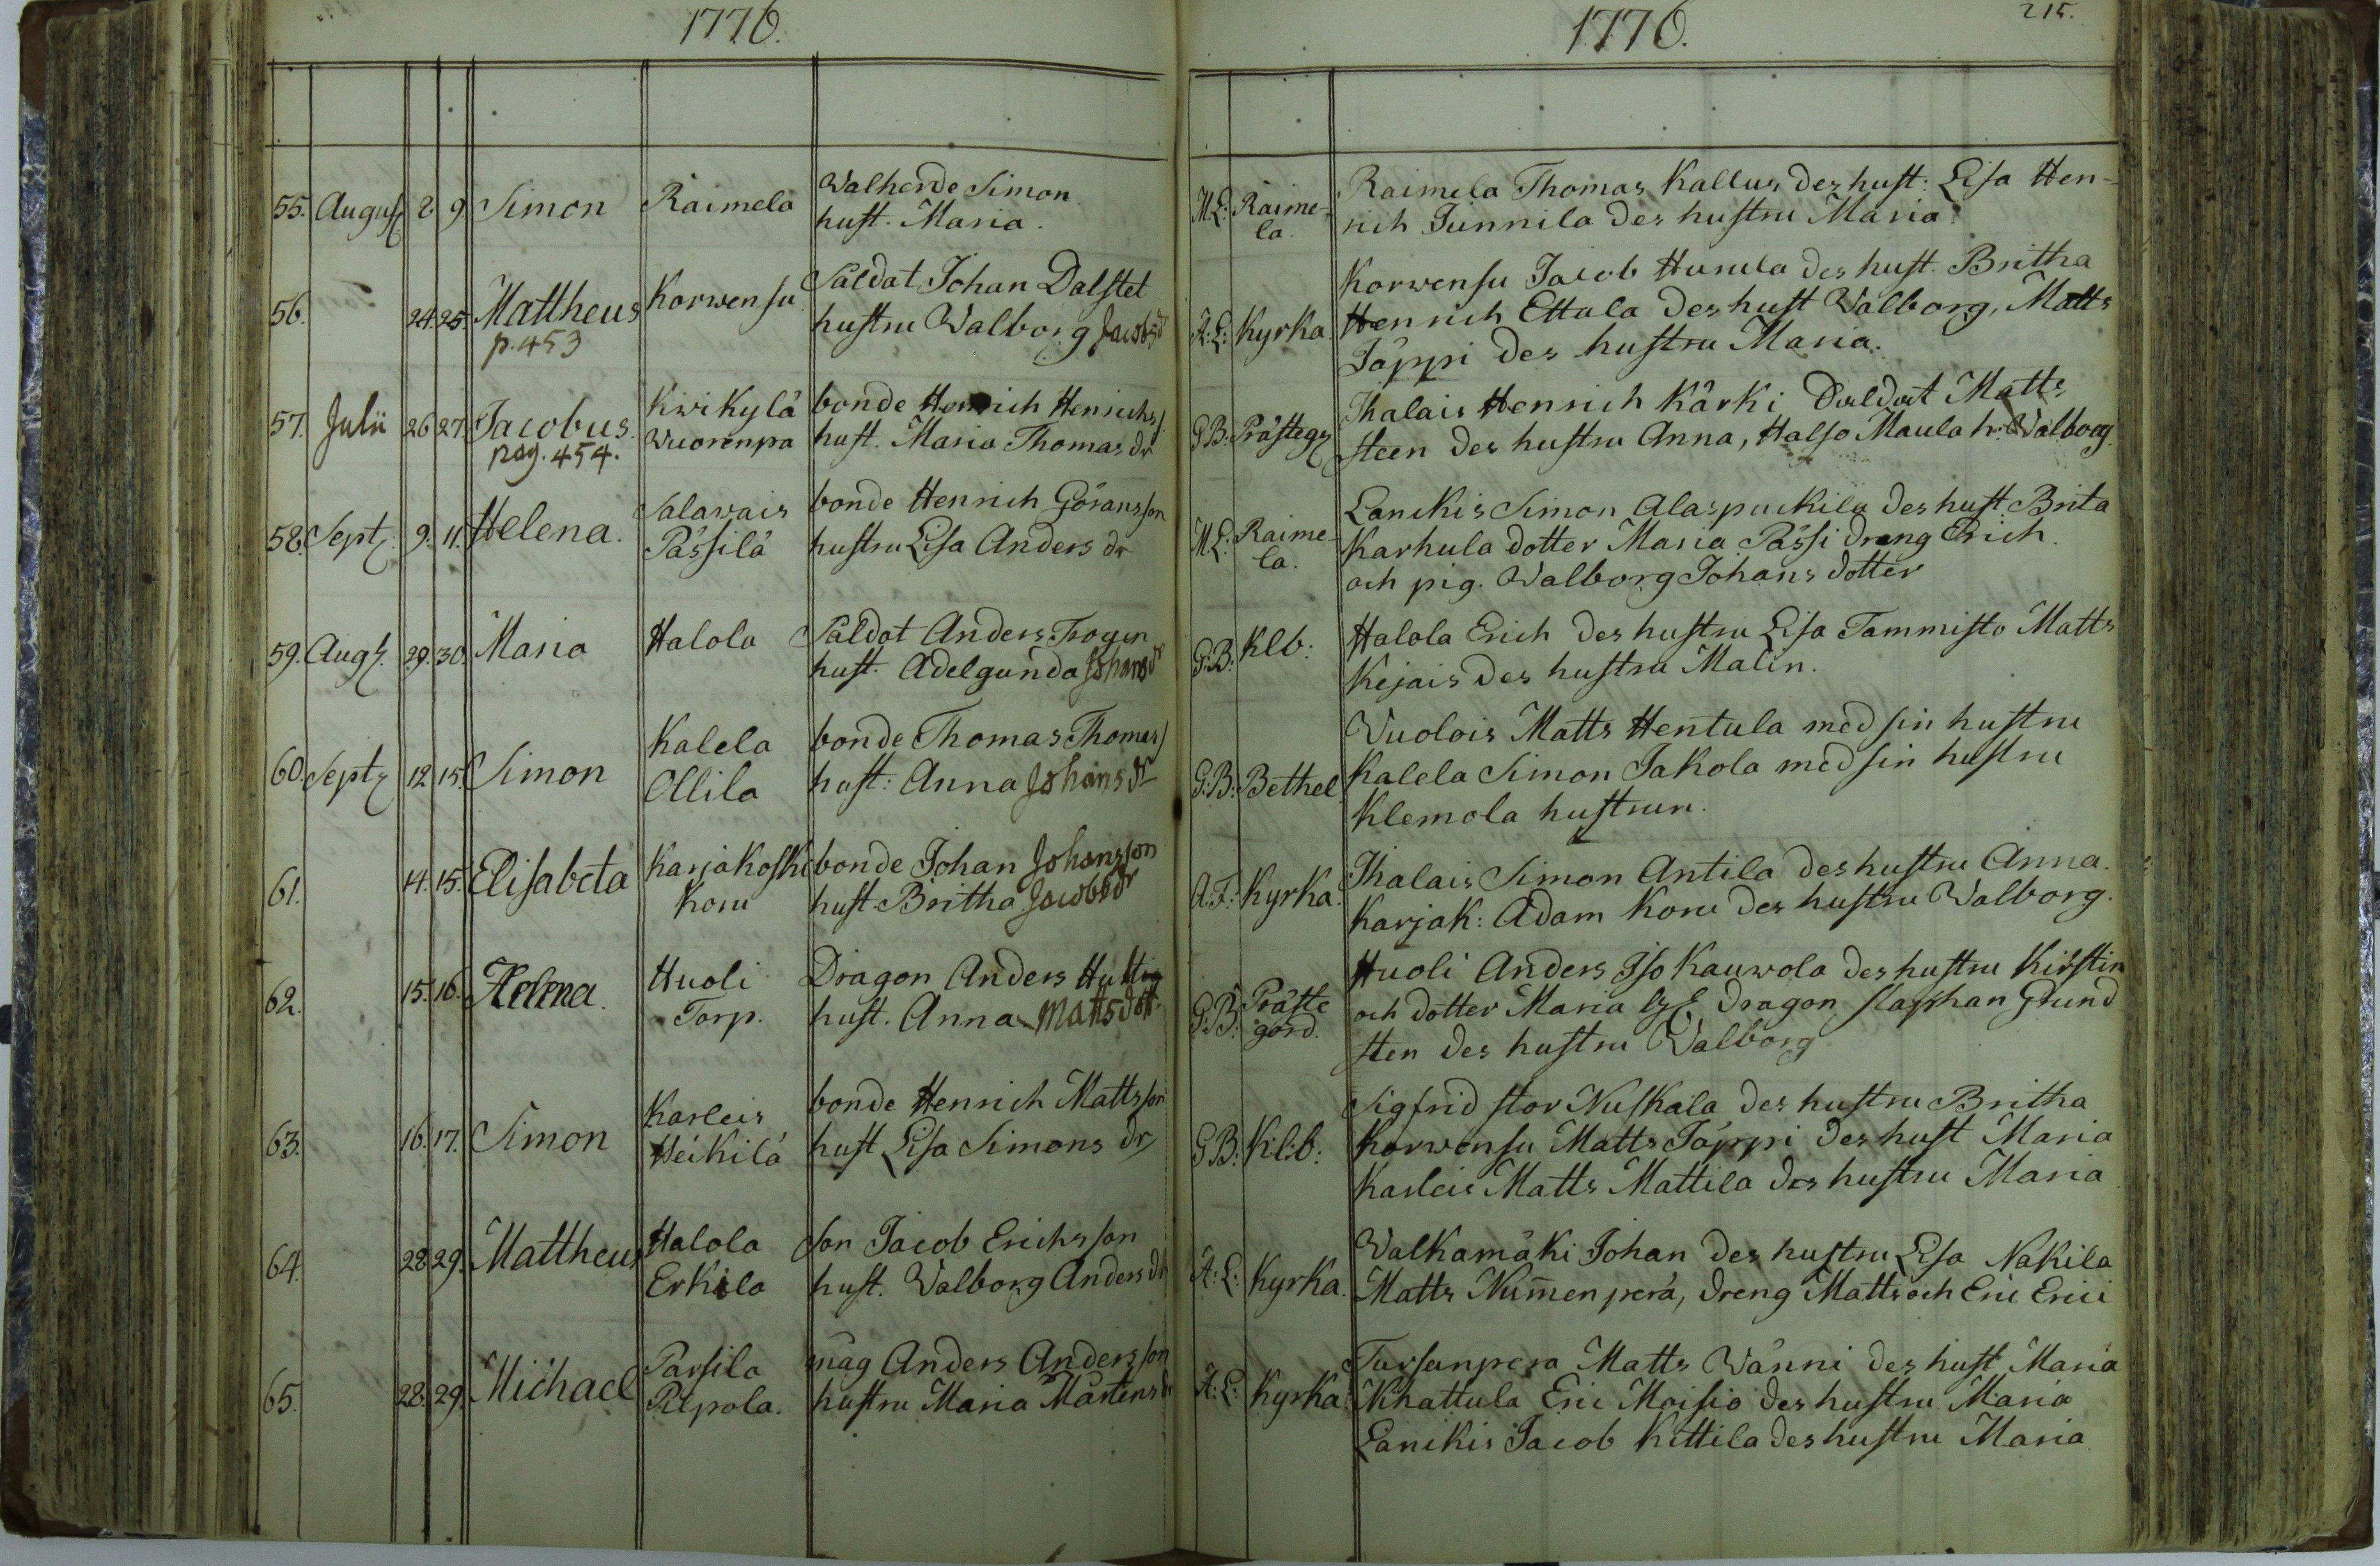 1776.
55. August 8 9 Simon Raimela Walherde Simon
hust. Maria.
56. 24. 25. Mattheus Korwensu Saldat Johan Dalstet
p. 453 hustru Walborg Jacobsdr
57. Julii 26 27. Jacobus. Kwikylä bonde Henrich Henrichs/
pag. 454. Wuorenpä hust. Maria Thomas dr
58. Sept. 9. 11. Helena. Salawais bonde Henrich Göransson
Pässilä hustru Lisa Anders dr
59. Aug. 29. 30. Maria Halola Saldat Anders Trogen
hust. Adelgunda Johansdr
60. Sept. 12 15. Simon Kalela bonde Thomas Thomas/
Ollila hust: Anna Johans dr
61. 14. 15. Elisabeta Karjakoski bonde Johan Johansson
Koru hust. Britha Jacobsdr
62. 15. 16. Helena. Huoli Dragon Anders Hulting
Torp. hust. Anna Matts dott.
63. 16. 17. Simon Karleis bonde Henrich Mattsson
Heikilä hust Lisa Simons dr
64. 28 29. Mattheus Halola Son Jacob Erichsson
Erkilo hust. Walborg Anders dr
65. 28. 29. Michael Parsila måg Anders Andersson
Pilpola. hustru Maria Mårtens dr
1776.
215.
M.L: Raime- Raimela Thomas Kallus des hust: Lisa Hen-
la. rich Junnila des hustru Maria.
Korwensu Jacob Hunula des hust. Britha
A: L: Kyrka Henrich Ettala des hust Walborg, Matts
Jäppi des hustru Maria.
G.B: Prästeg. Thalais Henrich Kärki Saldat Matts
steen des hustru Anna, Halso Maula h: Walborg
M.L: Raime- Lanckis Simon Alaspuckila des hust Brita
la. Karhula dotter Maria Pässi dreng Erich
och pig. Walborg Johans dotter
G:B: Klb: Halola Erich des hustru Lisa Tammisto Matts
Kejais des hustru Malin.
Wuolois Matts Hentula med sin hustru
G:B: Bethel Kalela Simon Jakola med sin hustru
Klemola hustrun.
A.F: Kyrka. Thalais Simon Antila des hustru Anna.
Karjak: Adam Koru des hustru Walborg.
Huoli Anders Iso Kauwola des hustru Kirstin
G:B: Präste och dotter Maria Dragon Staffhan Grund
gård. sten des hustru Walborg
Sigfrid stor Nuskala des hustru Britha
G.B: Kl:b: Korwensu Matts Jäppi des hust Maria
Karleis Matts Mattila des hustru Maria
A: L: Kyrka. Walkamäki Johan des hustru Lisa Nakila
Matts Num̅enperä, dreng Matts och Eric Erici
A: L: Kyrka: Tursunpera Matts Wänni des hust Maria
Khattula Eric Moisio des hustru Maria
Lanckis Jacob Kittila des hustru Maria